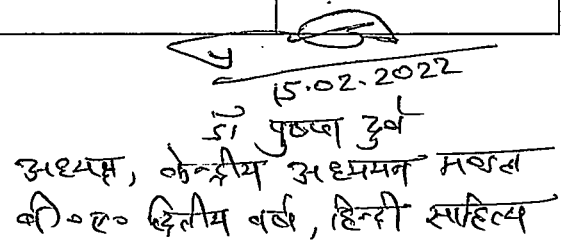 15.02.2022
डॉ पुष्पा दुबे
अध्यक्ष, केन्द्रीय अध्ययन मण्डल
बी०ए० द्वितीय वर्ष, हिन्दी साहित्य